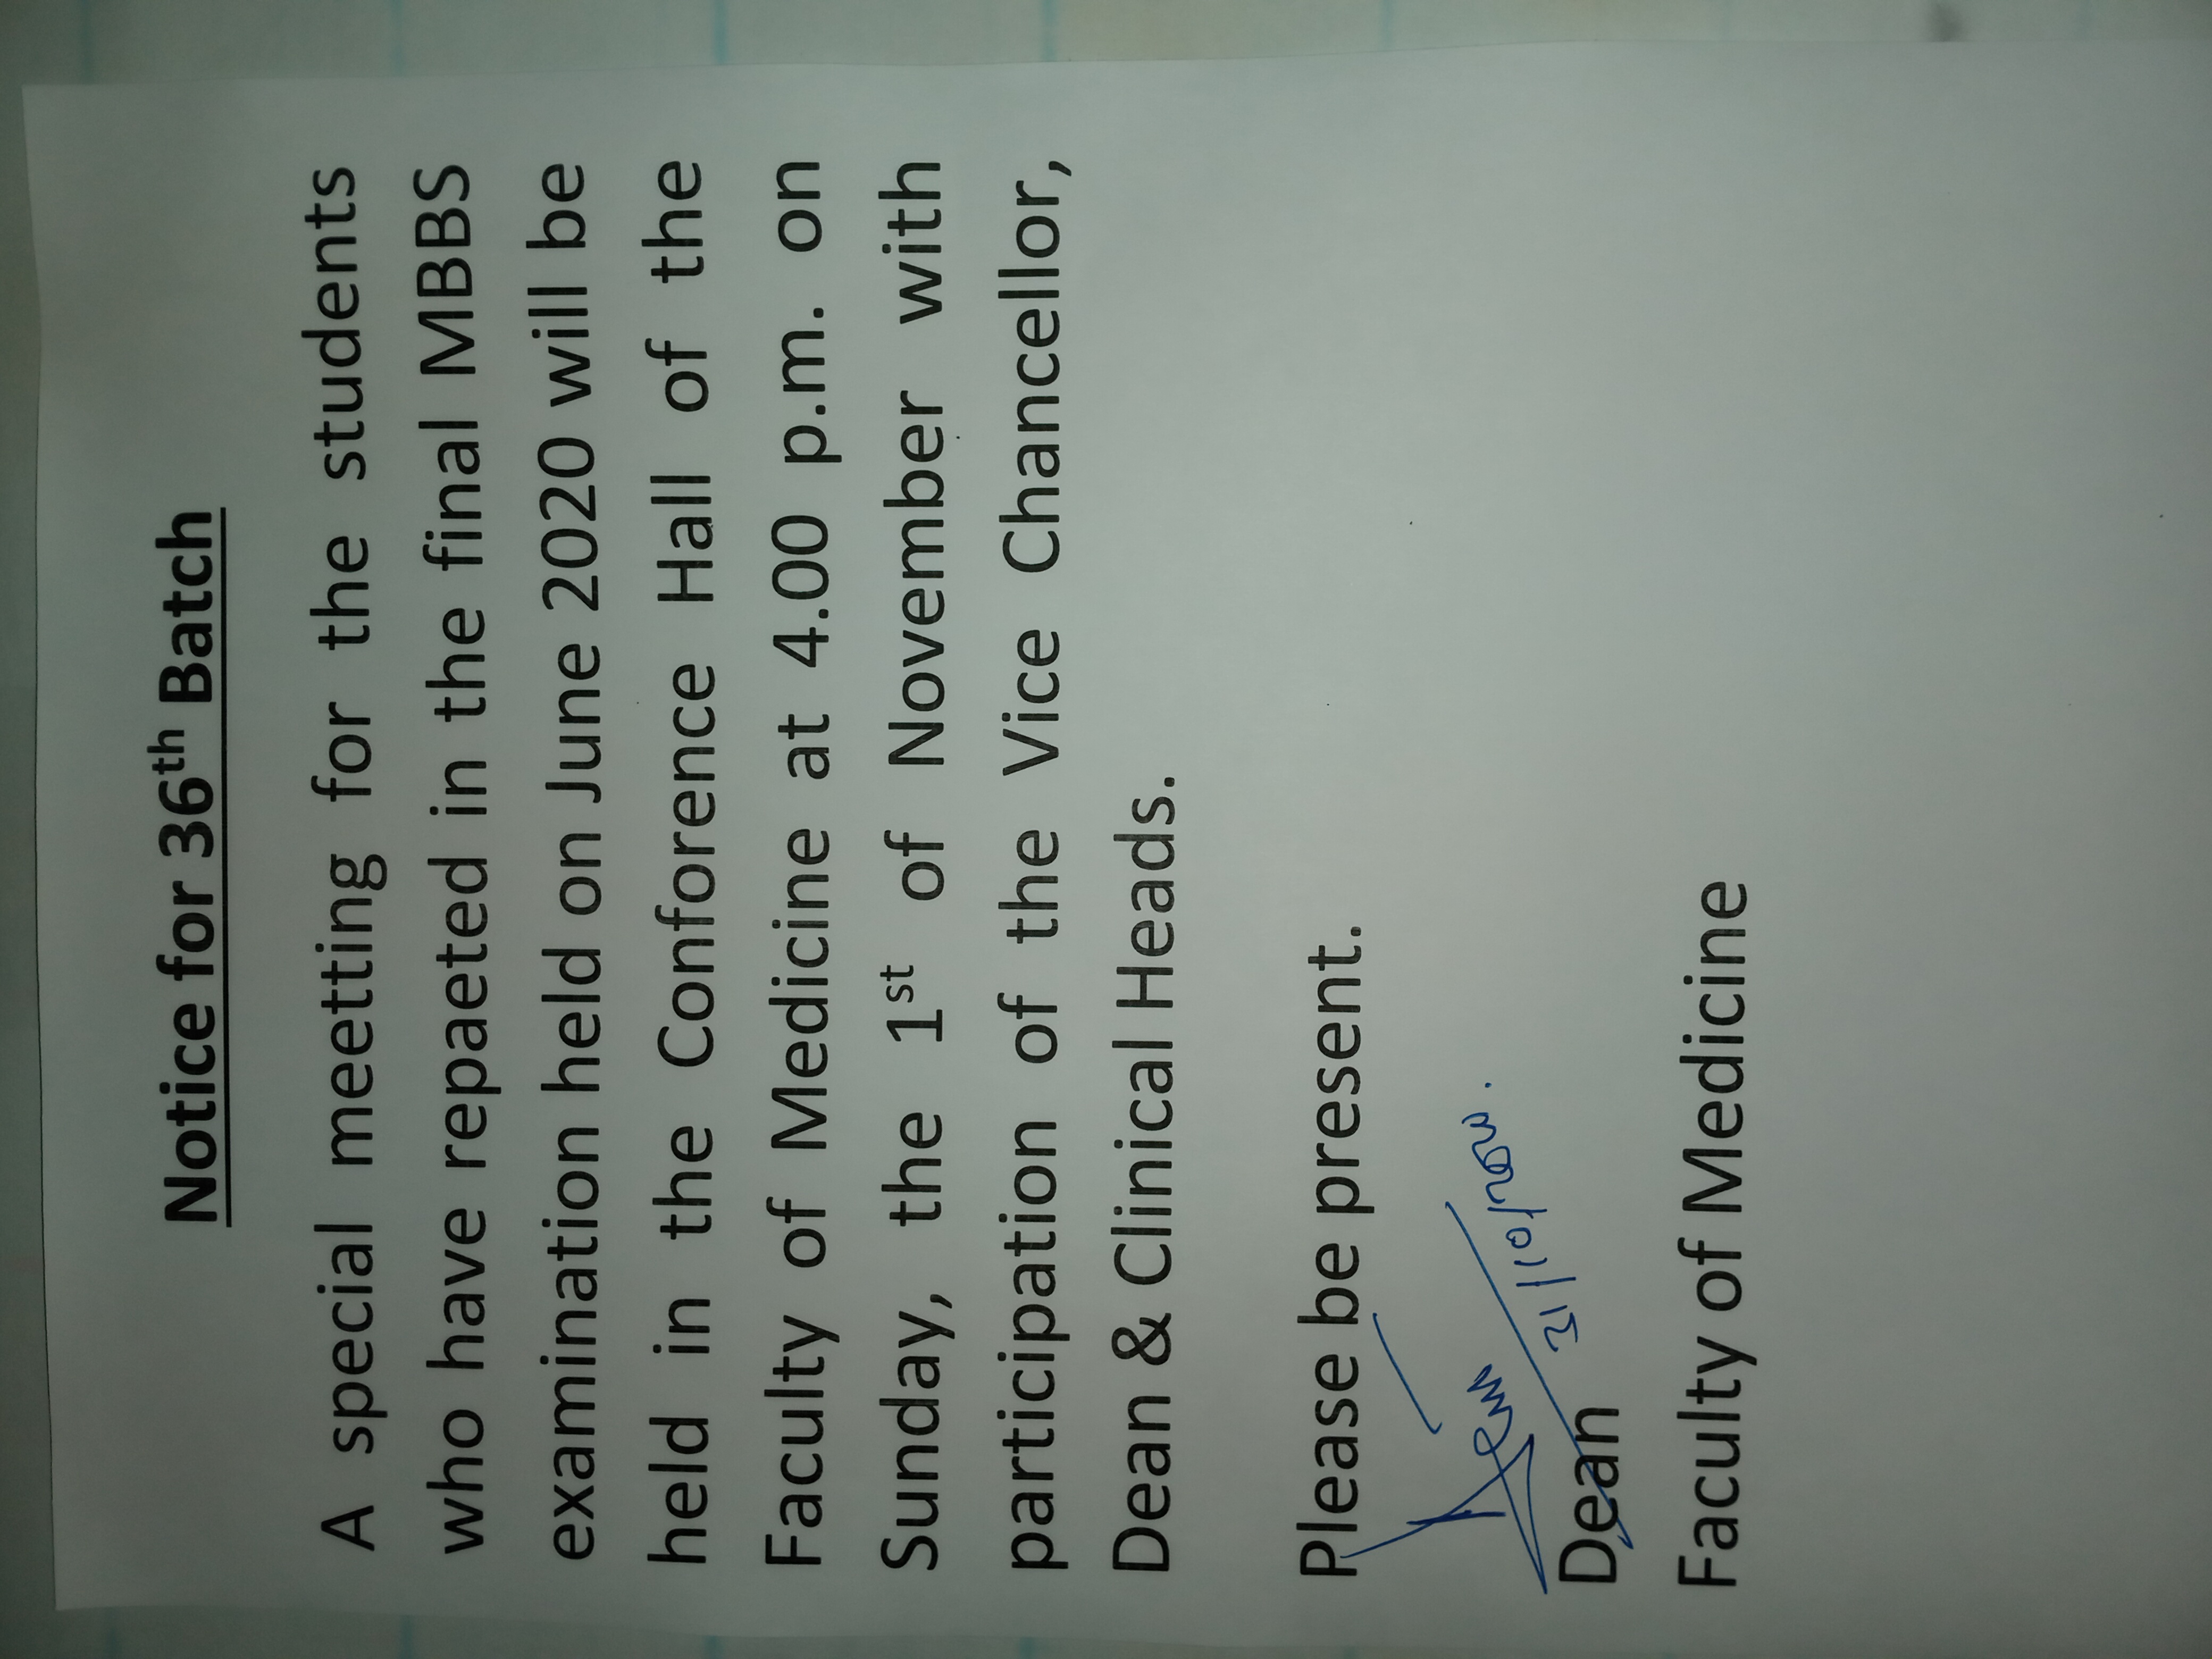 Notice for 36th Batch
A special meetting for the students
who have repaeted in the final MBBS
examination held on June 2020 will be
held in the Conforence Hall of the
Faculty of Medicine at 4.00 p.m. on
Sunday, the 1st of November with
participation of the Vice Chancellor,
Dean & Clinical Heads.
Please be present.
Dean
Faculty of Medicine